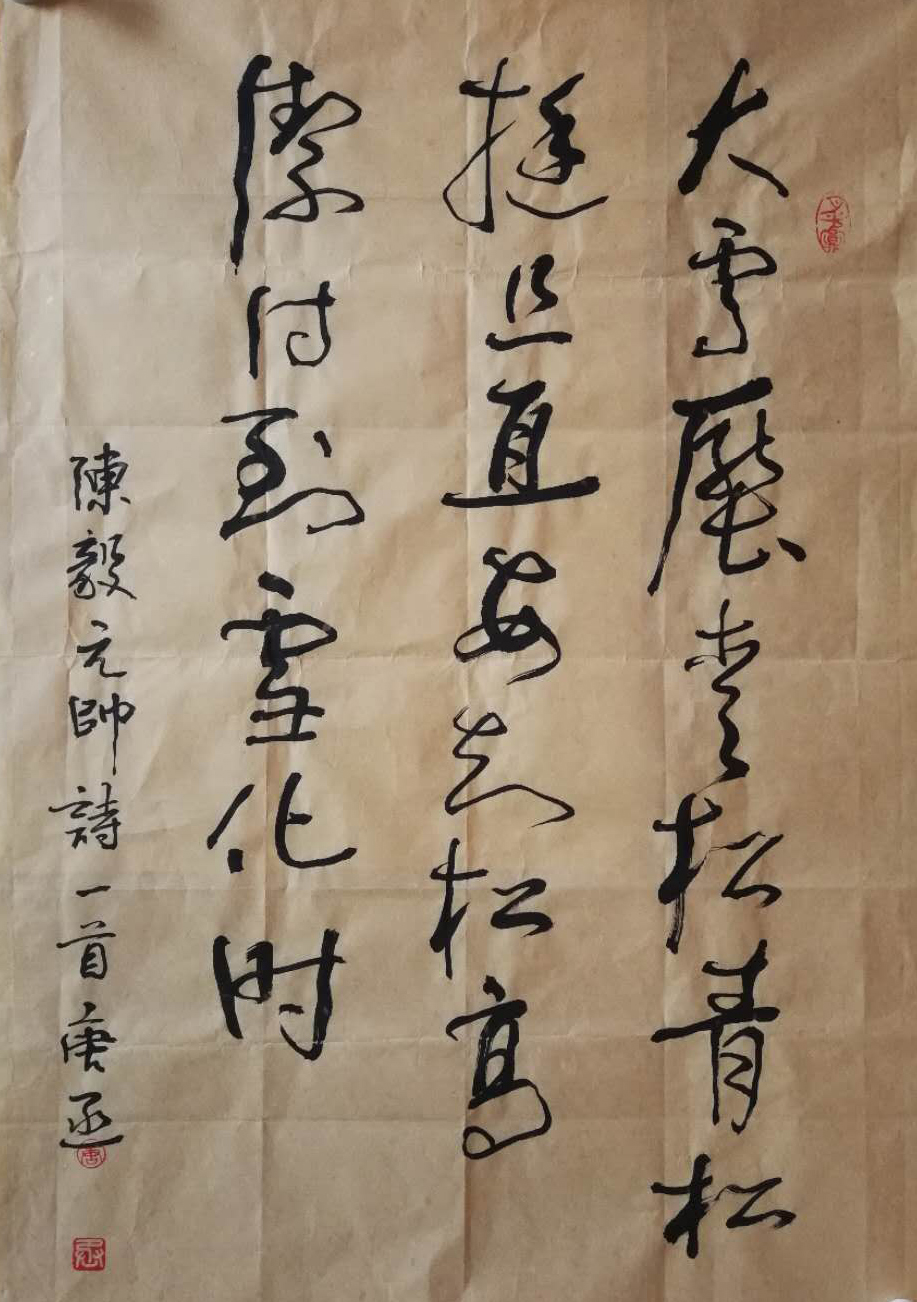 大雪壓青松青松
挺且直要知松高
潔待到雪化时
陳毅元帥詩一首唐丞
唐